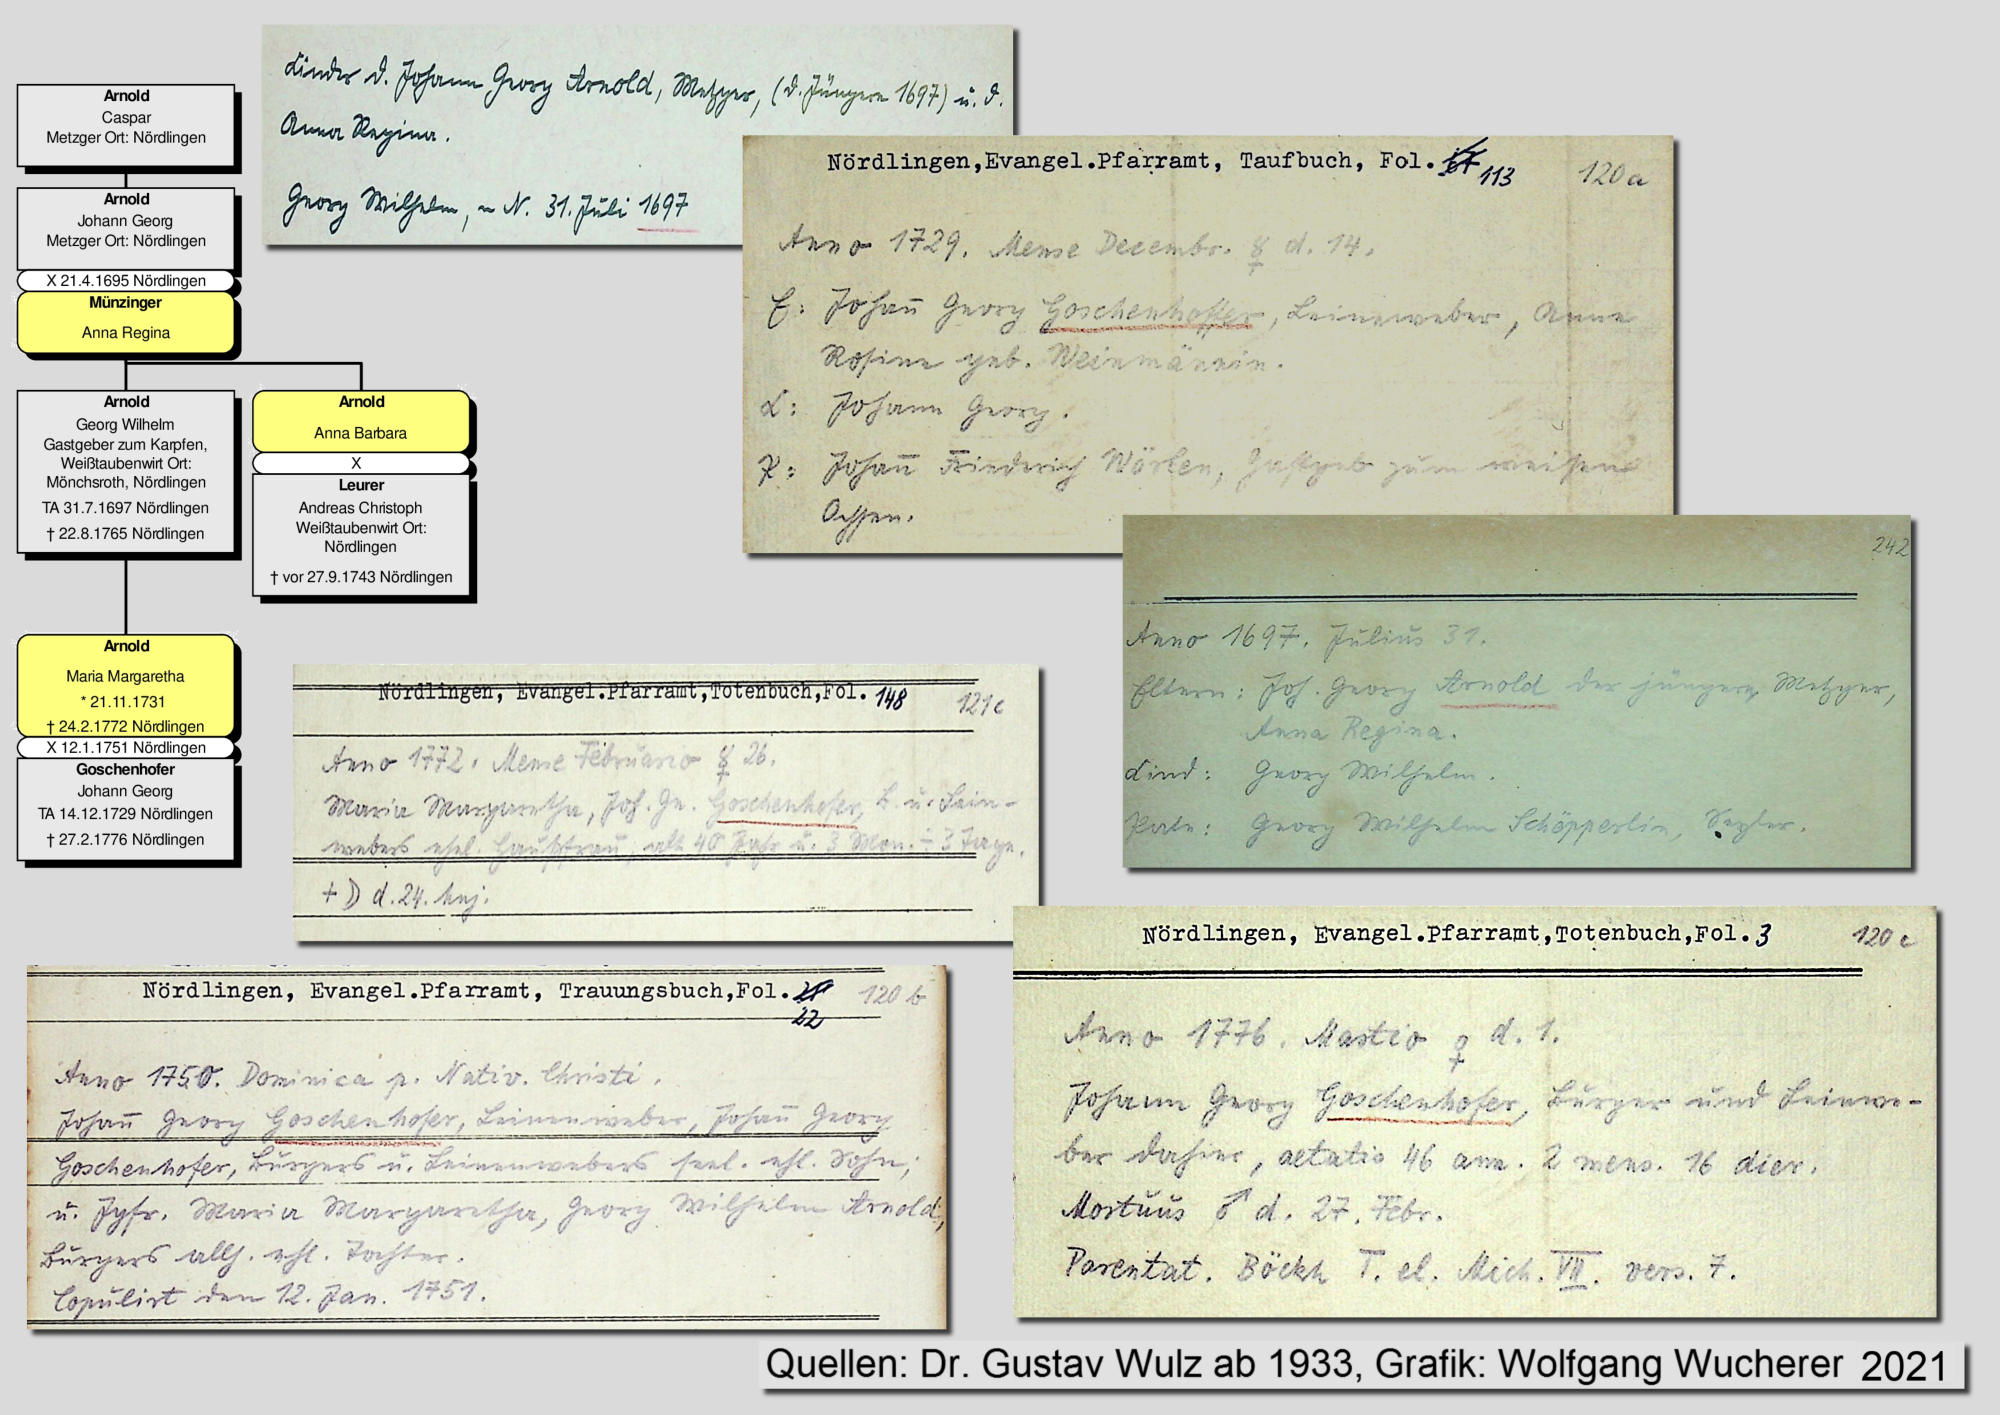 Arnold
Caspar
Metzger Ort: Nördlingen
Arnold
Johann Georg
Metzger Ort: Nördlingen
X 21.4.1695 Nördlingen
Münzinger
Anna Regina
Arnold
Georg Wilhelm
Gastgeber zum Karpfen,
Weißtaubenwirt Ort:
Mönchsroth, Nördlingen
TA 31.7.1697 Nördlingen
† 22.8.1765 Nördlingen
Arnold
Anna Barbara
X
Leurer
Andreas Christoph
Weißtaubenwirt Ort:
Nördlingen
† vor 27.9.1743 Nördlingen
Arnold
Maria Margaretha
* 21.11.1731
† 24.2.1772 Nördlingen
X 12.1.1751 Nördlingen
Goschenhofer
Johann Georg
TA 14.12.1729 Nördlingen
† 27.2.1776 Nördlingen
Kinder d. Johann Georg Arnold, Metzger, (d. Jüngere 1697) u. d.
Anna Regina.
Georg Wilhelm, ~ N. 31. Juli 1697
Nördlingen,Evangel.Pfarramt, Taufbuch, Fol. 113 120a
Anno 1729. Mense Decembr. ☿ d. 14.
E: Johañ Georg Goschenhoffer, Leineweber, Anna
Rosina geb. Weinmännin.
K: Johann Georg.
P: Johañ Friederich Wörlen, Gastgeb zum weißen
Ochsen.
242
Anno 1697. Julius 31.
Eltern: Joh. Georg Arnold der jüngere, Metzger,
Anna Regina.
Kind: Georg Wilhelm.
Pate: Georg Wilhelm Schöpperlin, Segler.
Nördlingen, Evangel.Pfarramt,Totenbuch,Fol. 148 121c
Anno 1772. Mense Februario ☿ 26.
Maria Margaretha, Joh. Ge. Goschenhofer, B. u. Lein-
webers ehel. Haußfrau, alt 40 Jahr u. 3 Mon. ÷ 3 Tage.
+ ☽ d. 24. huj.
Nördlingen, Evangel.Pfarramt, Trauungsbuch,Fol. 22 120 b
Anno 1750. Dominica p. Nativ. Christi.
Johañ Georg Goschenhofer, Leinenweber, Johañ Georg
Goschenhofer, Bürgers u. Leinenwebers seel. ehl. Sohn,
u. Jgfr. Maria Margaretha, Georg Wilhelm Arnold,
Bürgers allh. ehl. Tochter.
Copulirt den 12. Jan. 1751.
Nördlingen, Evangel.Pfarramt,Totenbuch,Fol. 3 120 c
Anno 1776. Martio ♀ d. 1.
Johann Georg Goschenhofer, Bürger und Leinwe-
ber dahier, aetatis 46 ann. 2 mens. 16 dier.
Mortuus ♂ d. 27. Febr.
Parentat. Böckh T. el. Mich. VII. vers. 7.
Quellen: Dr. Gustav Wulz ab 1933, Grafik: Wolfgang Wucherer 2021